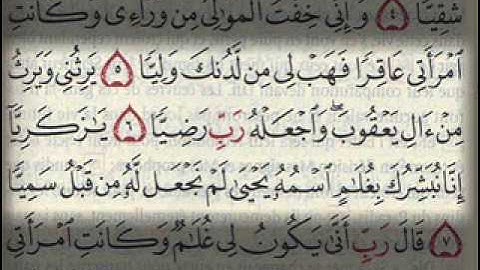 شَقِيًّا ٤ وَإِنِّى خِفْتُ ٱلْمَوَٰلِىَ مِن وَرَآءِى وَكَانَتِ
ٱمْرَأَتِى عَاقِرًا فَهَبْ لِى مِن لَّدُنكَ وَلِيًّا ٥ يَرِثُنِى وَيَرِثُ
مِنْ ءَالِ يَعْقُوبَ ۖ وَٱجْعَلْهُ رَبِّ رَضِيًّا ٦ يَٰزَكَرِيَّآ
إِنَّا نُبَشِّرُكَ بِغُلَٰمٍ ٱسْمُهُۥ يَحْيَىٰ لَمْ نَجْعَل لَّهُۥ مِن قَبْلُ سَمِيًّا
٧ قَالَ رَبِّ أَنَّىٰ يَكُونُ لِى غُلَٰمٌ وَكَانَتِ ٱمْرَأَتِى